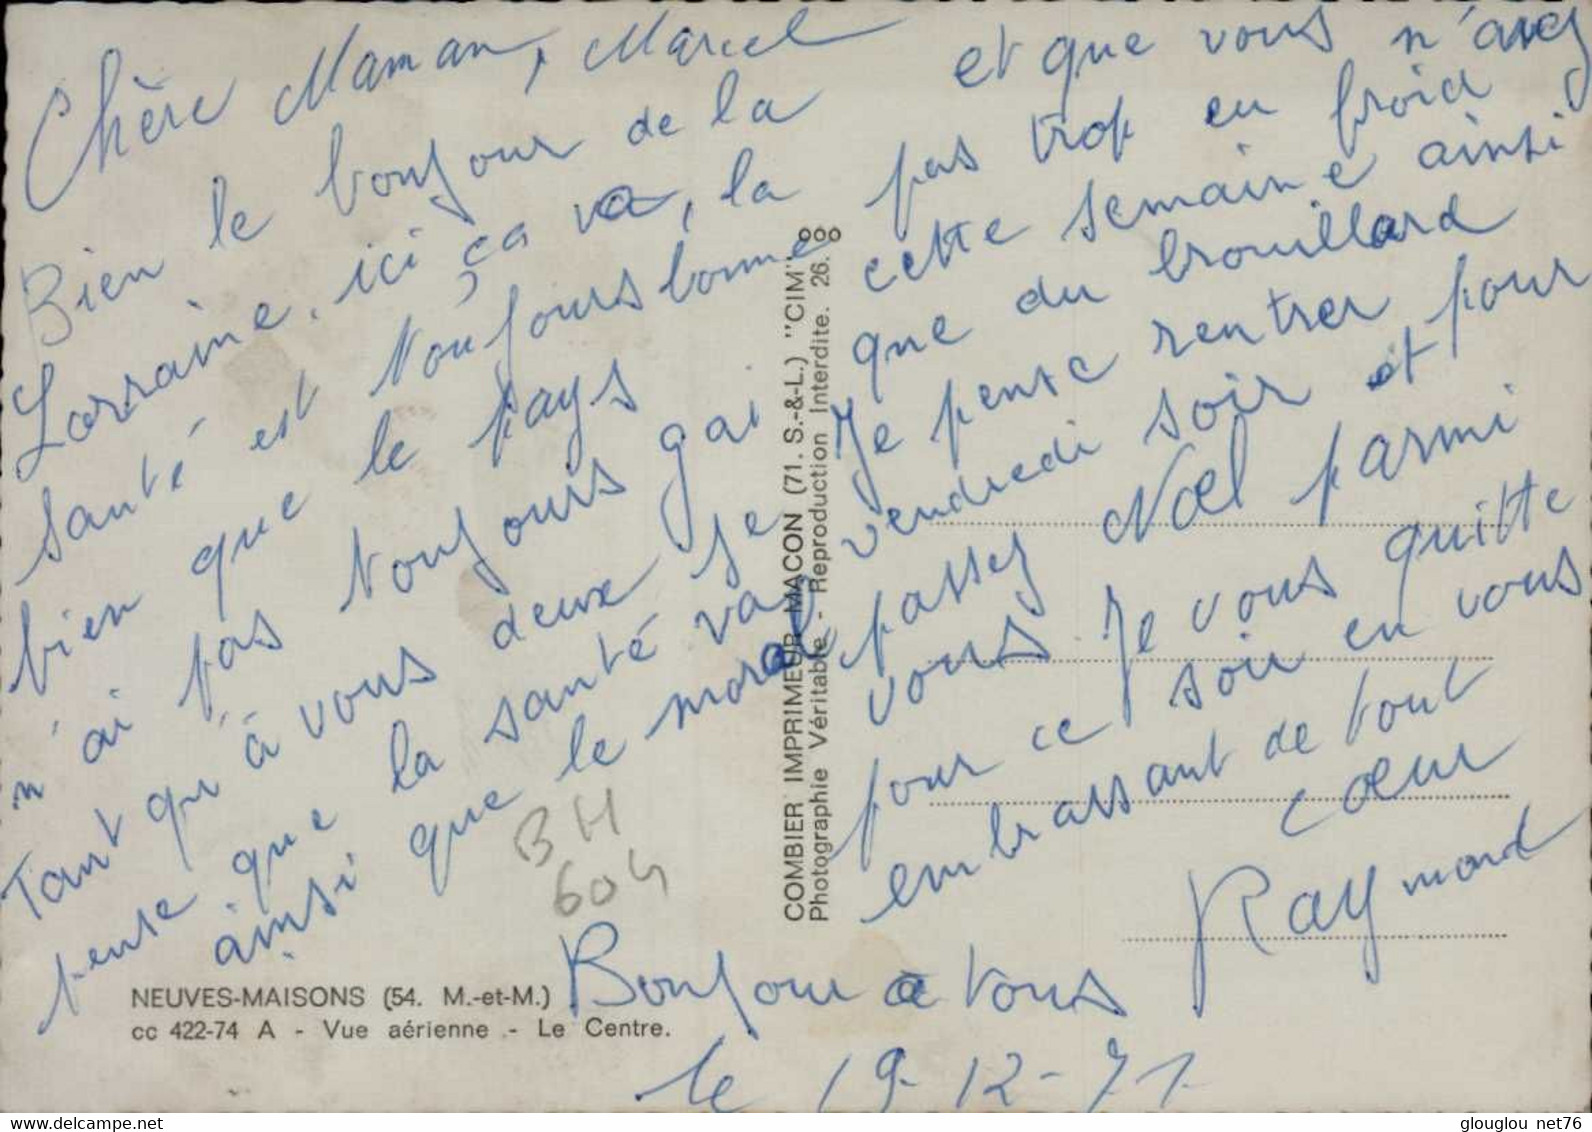 Chère Maman, Marcel
Bien le bonjour de la
Lorraine, ici ça va, la
santé est toujours bonne
bien que le pays
n'ai pas toujours gai
Tant qu'à vous deux je
pense que la santé va
ainsi que le moral
et que vous n'avez
pas trop eu froid
cette semaine ainsi
que du brouillard
Je pense rentrer pour
vendredi soir et pour
passez Noël parmi
vous. Je vous quitte
pour ce soir en vous
embrassant de tout
cœur
Raymond
Bonjour à tous
le 19-12-71
BH
604
COMBIER IMPRIMEUR MACON (71. S.-&-L.) "CIM"
Photographie Véritable - Reproduction Interdite. 26. 000
NEUVES-MAISONS (54. M.-et-M.)
cc 422-74 A - Vue aérienne - Le Centre.
glouglou_net76